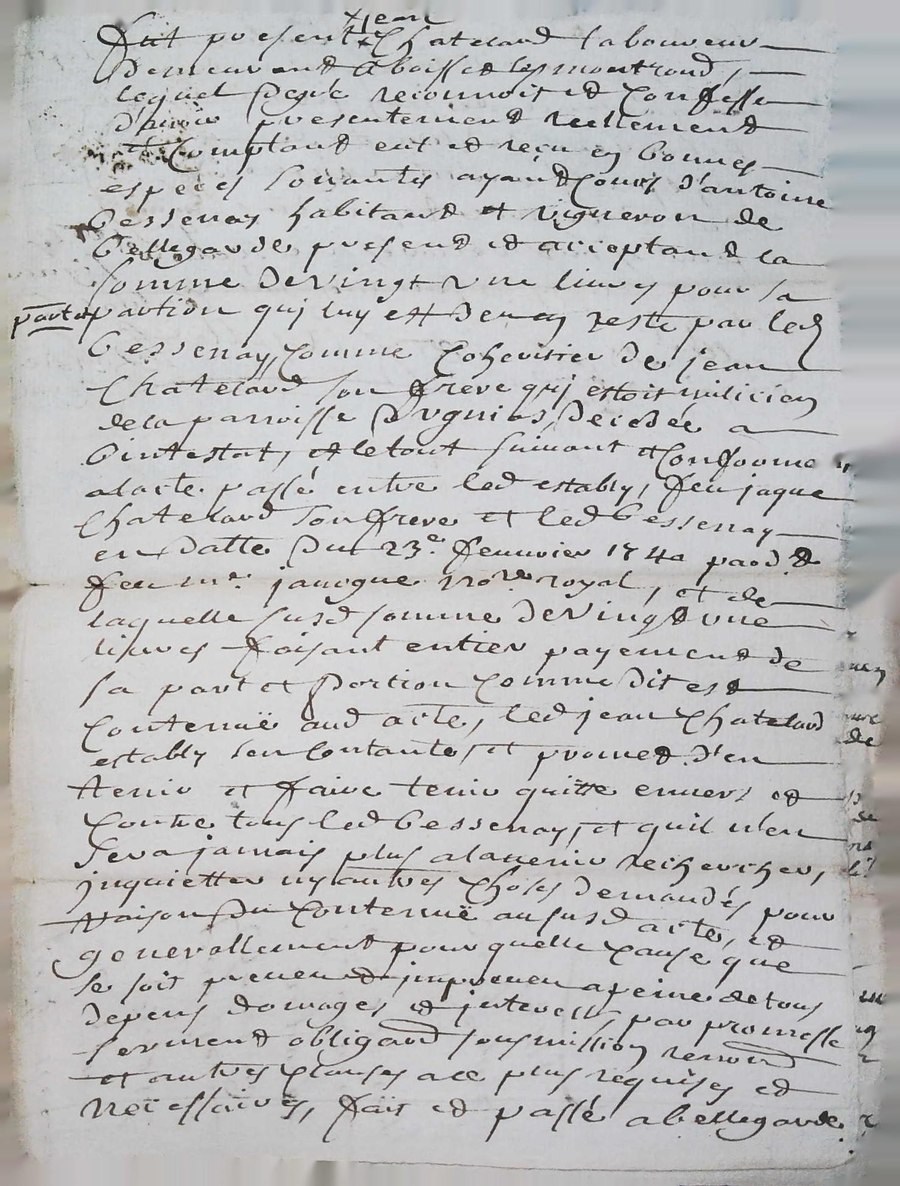 x jean
fut present x Chatelard laboureur
demeurant a boisset les montrond,
lequel de gré reconnoist et Confesse
d'avoir presentement reellement
et Comptant eut et reçu en bonnes
especes sonantes ayant Cours d'antoine
bessenay habitant et vigneron de
bellegarde present et acceptant la
somme de vingt une livres pour sa
part et portion quy luy est de en reste par led
bessenay, Comme Coheritier de jean
Chatelard son frere quy estoit milicien
de la parroisse decédé a
bintestat, et le tout suivant et Conforme
a lacte passé entre led estably, feu jaque
Chatelard son frere et led bessenay
en datte du 23e feuvrier 1740 par d.t
feu me. janogue nore. royal, et de
laquelle susd somme de vingt une
livres faisant entier payement de
sa part et portion Comme dit est
Contenuë aud acte, led jean Chatelard
estably sen Contante, et promet d'en
tenir et faire tenir quitte envers et
Contre tous led bessenay, et quil n'en
sera jamais plus a lavenir rechercher,
inquietter ny autres Choses demandés pour
raison du Contenuë au susd acte, et
generallement pour quelle Cause que
se soit preveu et impreveu a peine de tous
depens domages et interests par promesse
serment obligaõn soumission renoõn
et autres Clauses a ce plus requises et
necessaires, fait et passé a bellegarde